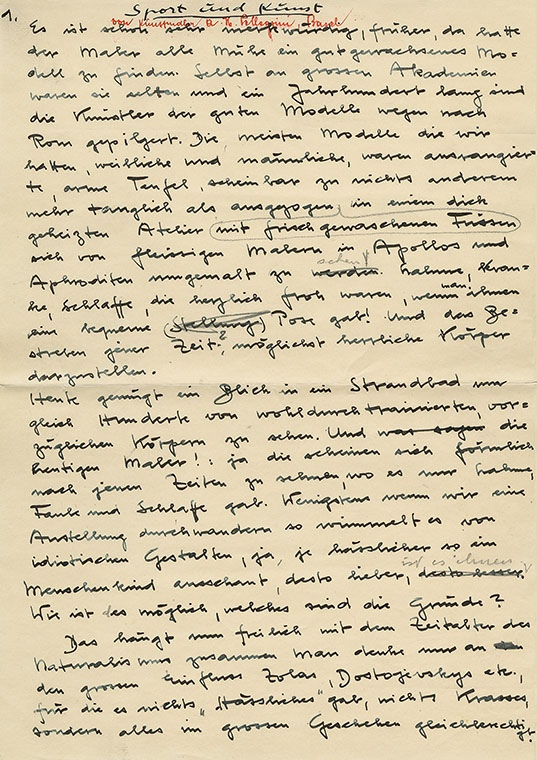 1. Sport und Kunst
von Kunstmaler A. H. Pellegrini, Basel
Es ist schon sehr merkwürdig, früher, da hatte
der Maler alle Mühe ein gutgewachsenes Mo=
dell zu finden. Selbst an grossen Akademien
waren sie selten und ein Jahrhundert lang sind
die Künstler der guten Modelle wegen nach
Rom gepilgert. Die meisten Modelle die wir
hatten, weibliche und männliche, waren ausrangier=
te, arme Teufel, scheinbar zu nichts anderem
mehr tauglich als ausgezogen, in einem dick
geheizten Atelier mit frisch gewaschenen Füssen
sich von fleissigen Malern in Apollos und
Aphroditen umgemalt zu werden. sehen lahme, kran=
ke, Schlaffe, die herzlich froh waren, wenn man ihnen
eine bequeme (Stellung) Pose gab! Und das Be=
streben jener Zeit? möglichst herrliche Körper
darzustellen.
Heute genügt ein Blick in ein Strandbad um
gleich Hunderte von wohldurchtrainierten, vor=
züglichen Körpern zu sehen. Und was sagen die
heutigen Maler!: ja die scheinen sich förmlich
nach jenen Zeiten zu sehnen, wo es nur lahme,
Faule und Schlaffe gab. Wenigstens wenn wir eine
Austellung durchwandern so wimmelt es von
idiotischen Gestalten, ja, je hässlicher so ein
Menschenkind ausschaut, desto lieber, desto besser. ist es ihnen
Wie ist des möglich, welches sind die Gründe?
Das hängt nun freilich mit dem Zeitalter des
Naturalismus zusammen. Man denke nur an
den grossen Einfluss Zolas, Dostojevskys etc.,
für die es nichts „Hässliches" gab, nichts Krasses,
sondern alles im grossen Geschehen gleichberechtigt.